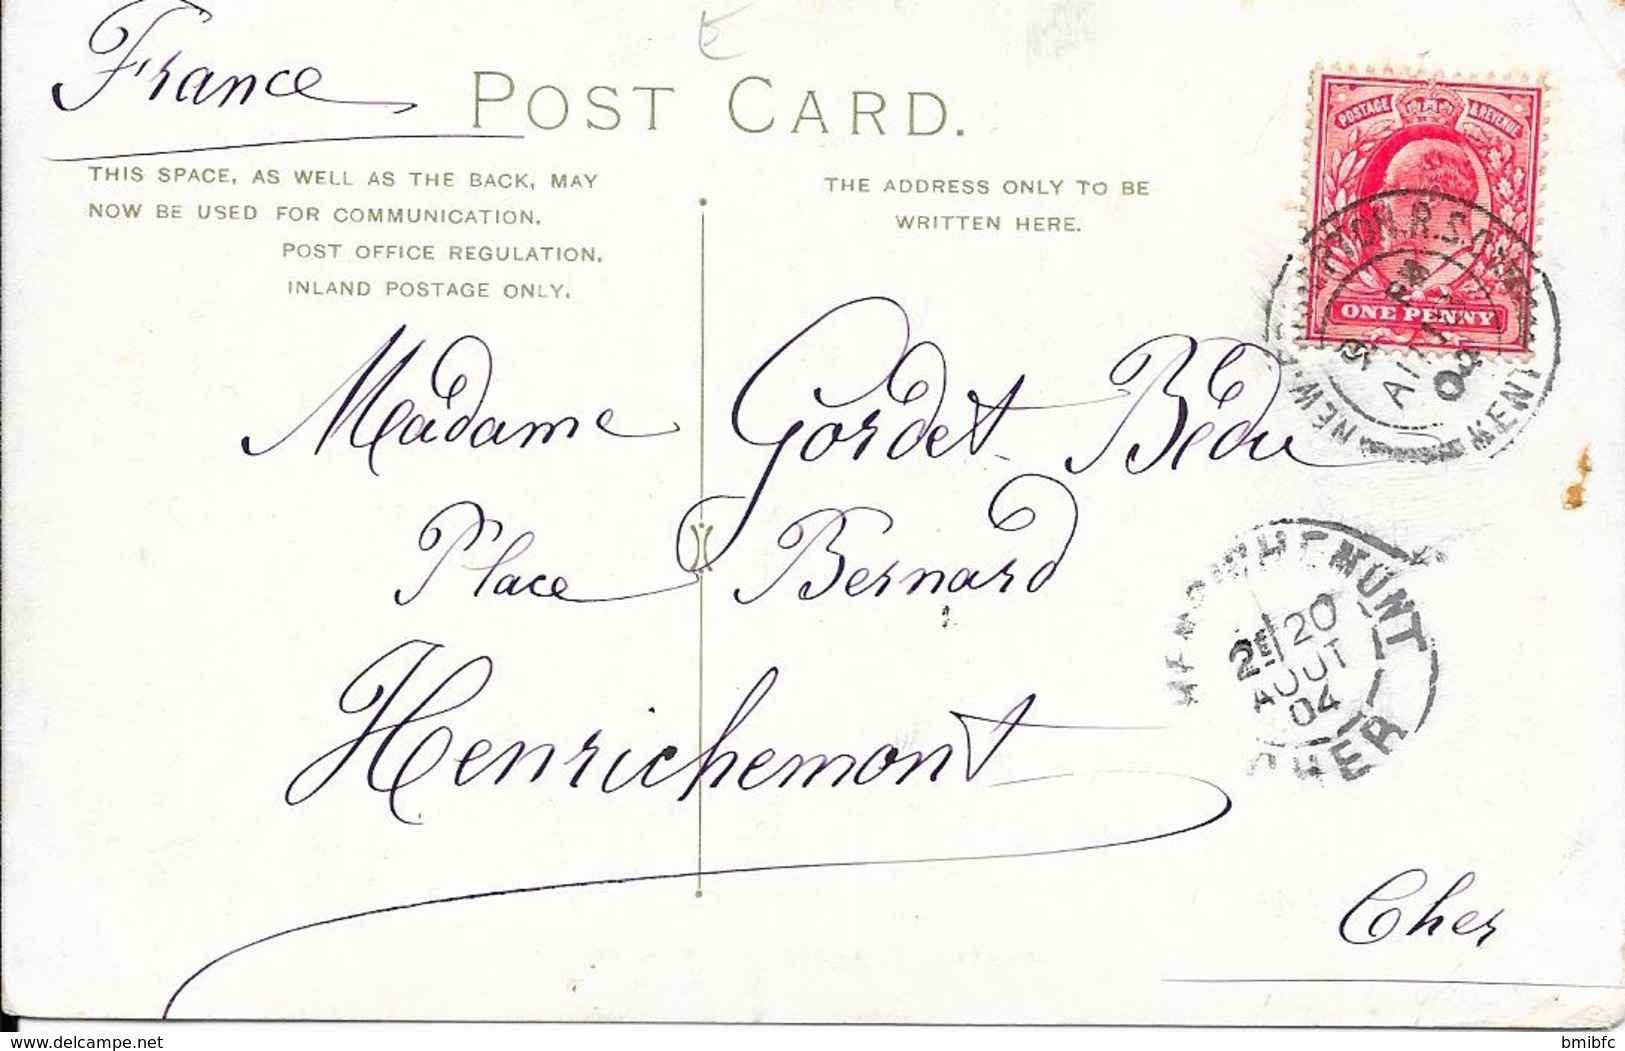 France
POST CARD.
THIS SPACE, AS WELL AS THE BACK, MAY
NOW BE USED FOR COMMUNICATION.
POST OFFICE REGULATION.
INLAND POSTAGE ONLY.
THE ADDRESS ONLY TO BE
WRITTEN HERE.
POSTAGE & REVENUE
ONE PENNY
NEW. R.S.O. KENT
Madame Gordet Bédu
Place Bernard
Henrichemont
Cher
HENRICHEMONT
2E/20
AOUT
04
CHER
delcampe.net
bmibfc